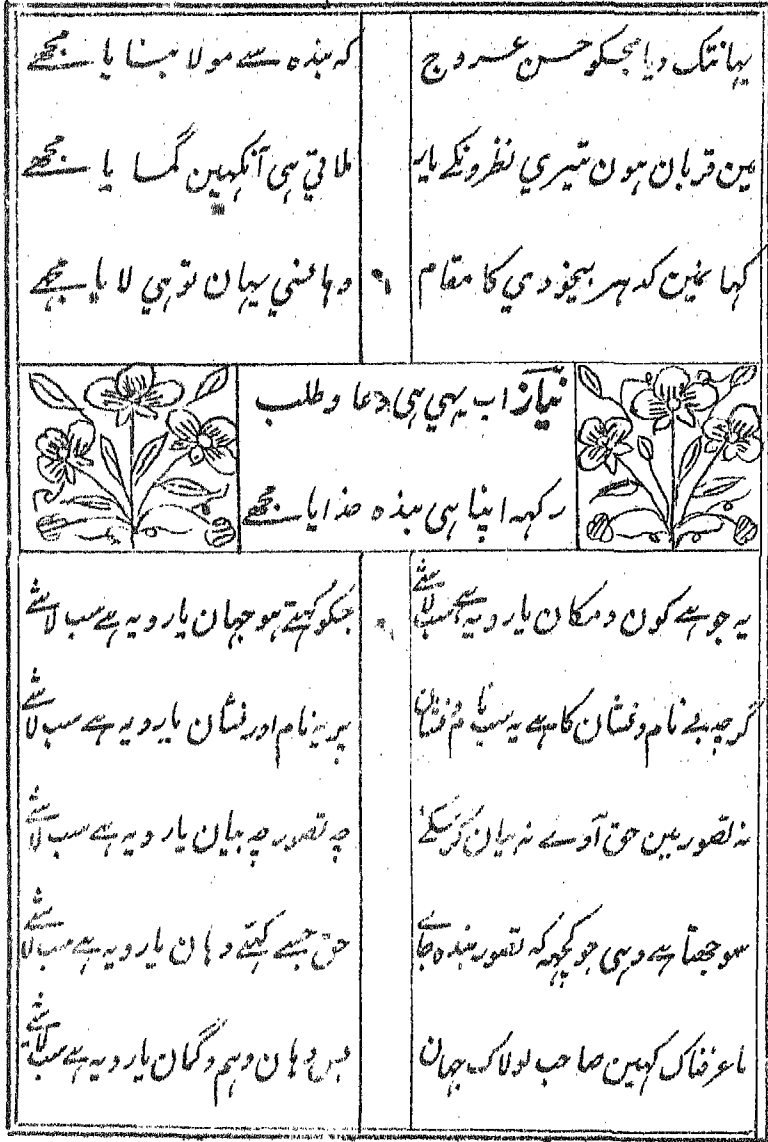 یہانتک دیا مجکو حسن عروج
کہ بندہ سے مولا بنایا مجھے
مین قربان ہون تیری نظرونکے یار
ملاتی ہی آنکہین گمایا مجھے
کہا مین کدہر بیخودی کا مقام
وہا نسنی یہان توہی لایا مجھے
نیاز اب یہی ہی دعا و طلب
رکہہ اپنا ہی بندہ خدایا مجھے
یہ جو ہے کون و مکان یارو یہ ہے سب لاشے
جسکو کہتے ہو جہان یارو یہ ہے سب لاشے
گرچہ بے نام و نشان کا ہے یہ سب نام و نشان
پر یہ نام اور نشان یارو یہ ہے سب لاشے
نہ تصور مین حق آوے نہ بیان کر سکئے
چہ تصور چہ بیان یارو یہ ہے سب لاشے
سوجھتا ہے وہی جو کچہہ کہ تصور بندہ جاے
حق جسے کہتے وہان یارو یہ ہے سب لاشے
ما عرفناک کہین صاحب لولاک جہان
بس وہان وہم و گمان یارو یہ ہے سب لاشے